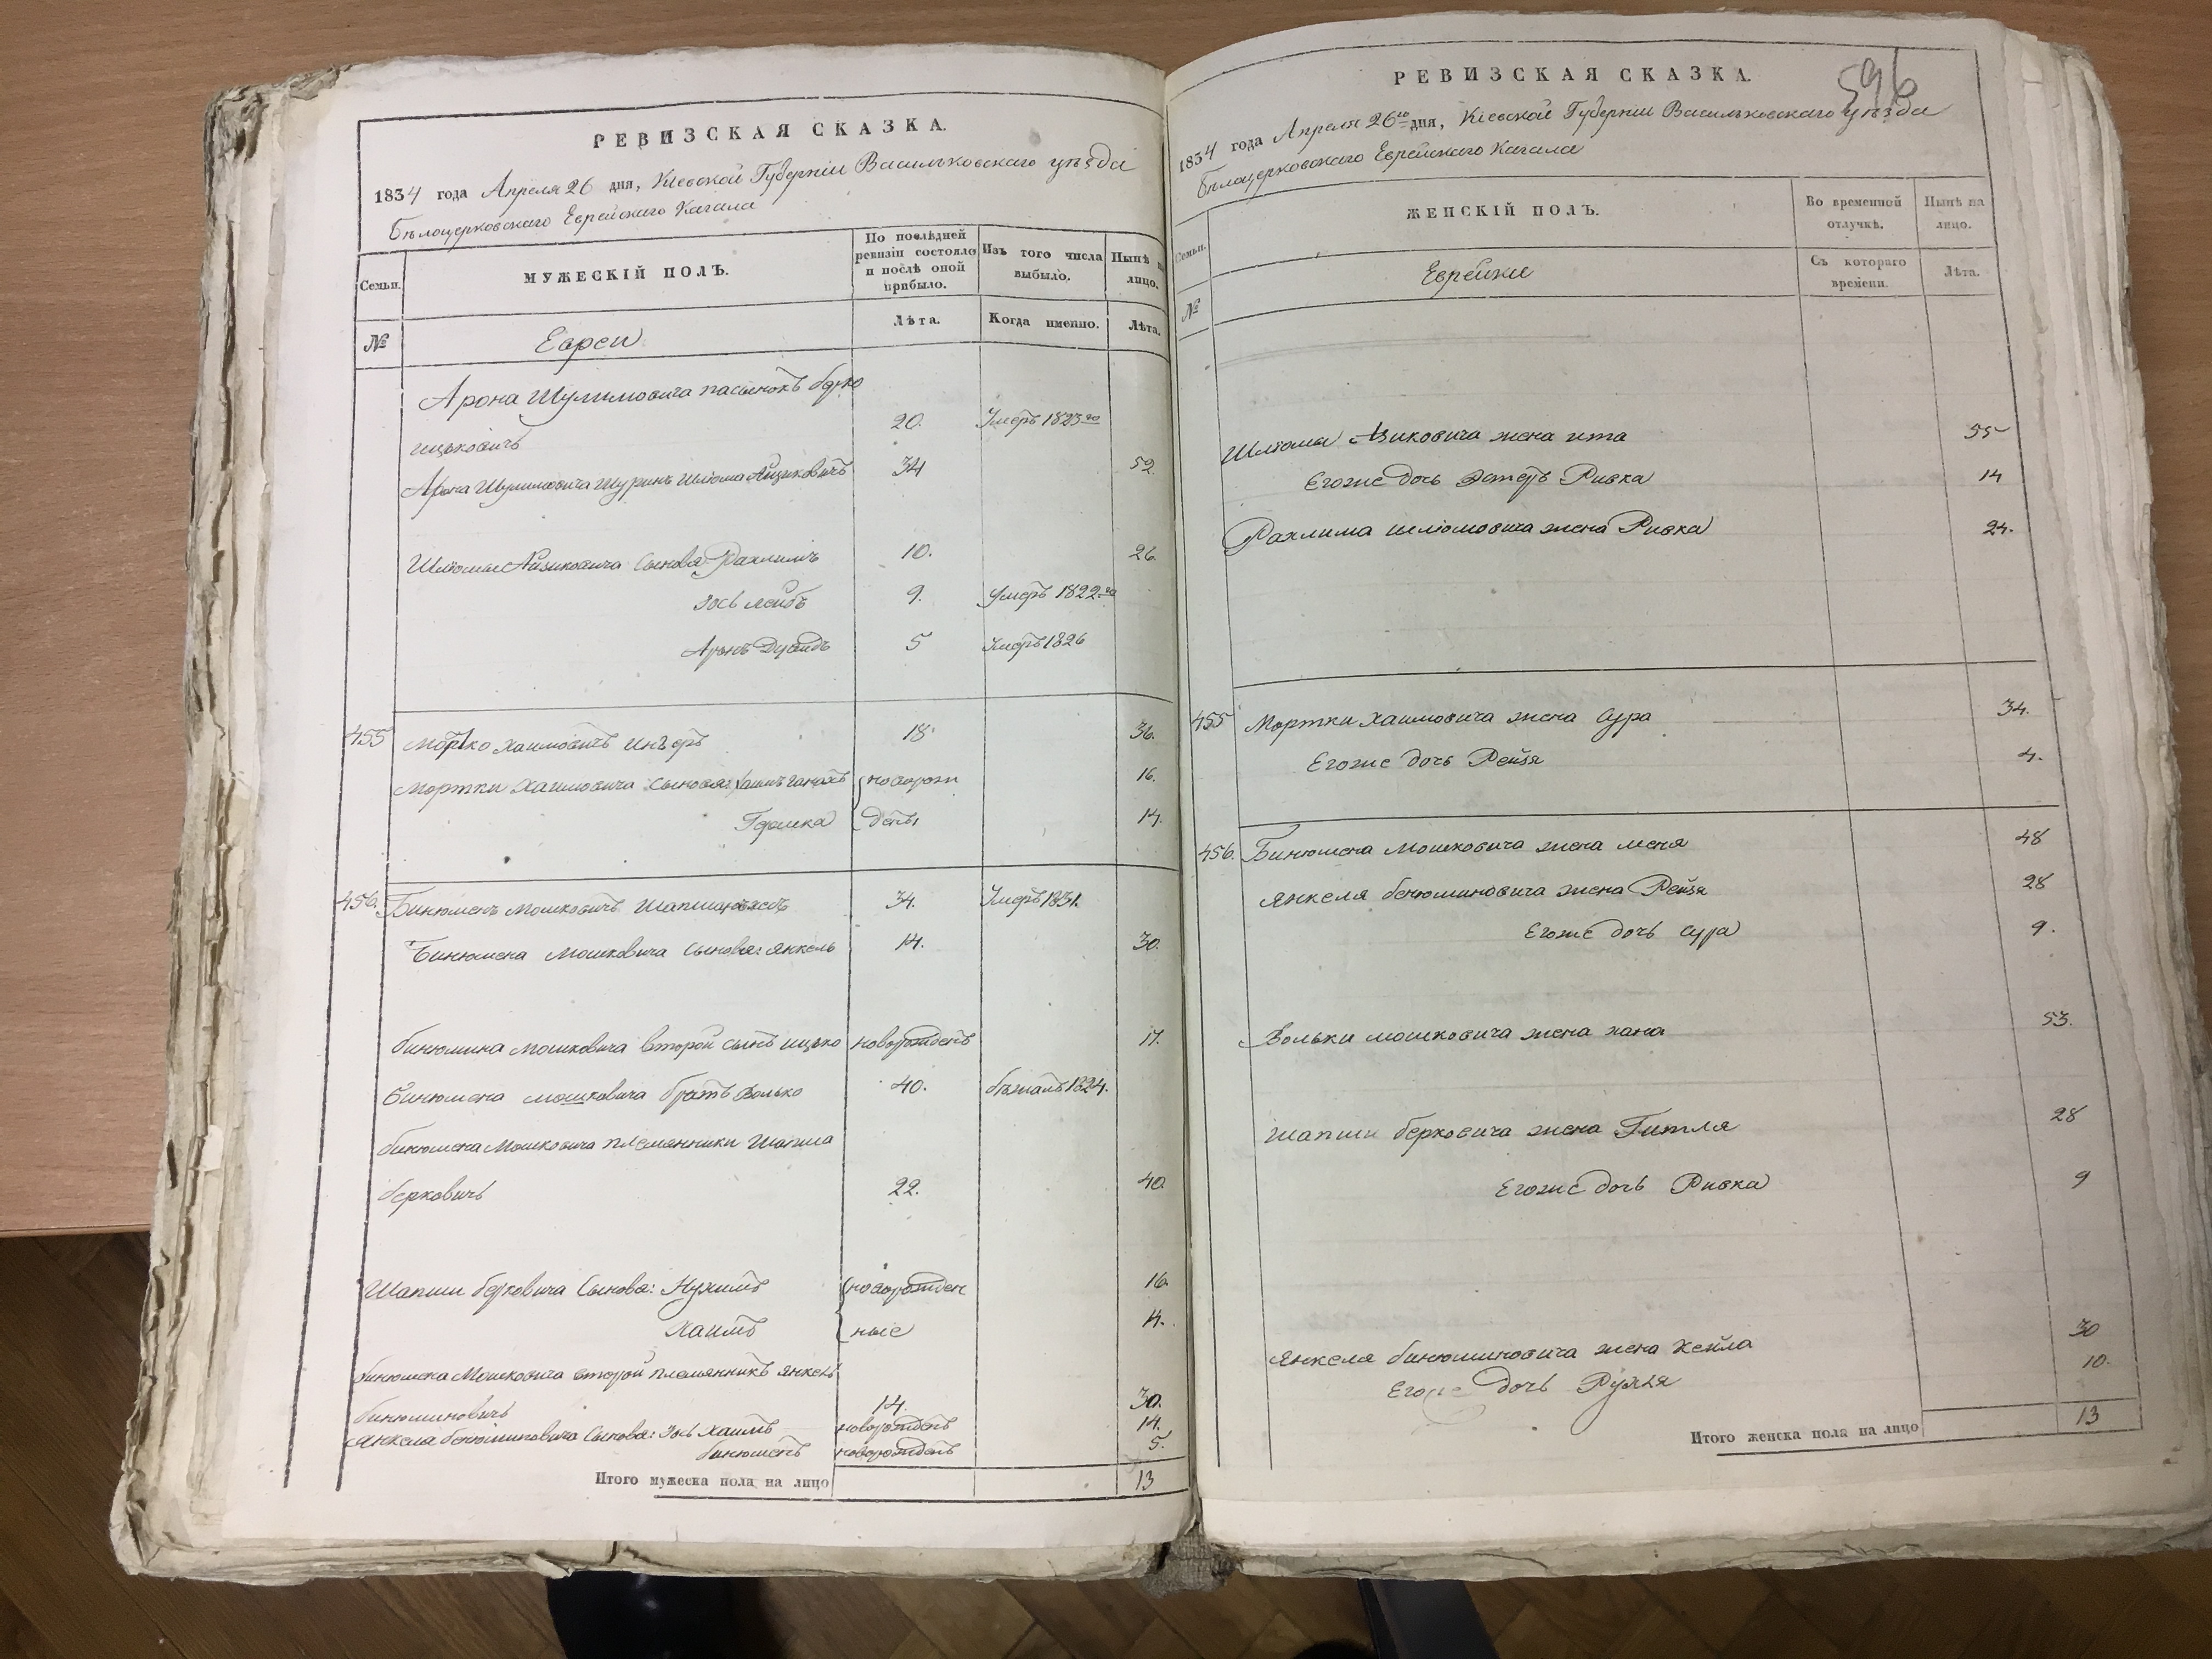 РЕВИЗСКАЯ СКАЗКА.
1834 года Апреля 26 дня, Кіевской Губерніи Васильковскаго уѣзда
Бѣлоцерковскаго Еврейскаго Кагала
Семьи.
МУЖЕСКІЙ ПОЛЪ.
По послѣдней ревизіи состояло и послѣ оной прибыло.
Изъ того числа выбыло.
Нынѣ на лицо.
№
Евреи
Лѣта.
Когда именно.
Лѣта.
Арона Шулимовича пасынокъ берко
ицьковичъ 20. Умеръ 1823го
Арона Шулимовича Шуринъ Шлиома Айзиковичъ 34 52.
Шлиомы Айзиковича Сыновя Рахлимъ 10. 26.
Іось Лейбъ 9. Умеръ 1822го
Аронъ Дувидъ 5 Умеръ 1826
455 Мортко Хаимовичъ 18 36.
Мортки Хаимовича Сыновя: Хаимъ новорож 16.
Гершка дены 14.
456. Бинюменъ Мошковичъ 34. Умеръ 1831.
Бинюмена Мошковича Сыновя: Янкель 14. 30.
бинюмина Мошковича второй сынъ ицько новорожденъ 17.
Бинюмена мошковича братъ Волько 40. бѣжалъ 1824.
бинюмена Мошковича племянники Шапша
берковичъ 22. 40.
Шапши берковича Сыновя: Нухимъ новорожден 16.
Хаимъ ные 14.
бинюмена Мошковича второй племянникъ янкель
бинюминовичъ 14. 30.
Янкеля бенюминовича Сыновя: Іось Хаимъ новорожденъ 14.
бинюменъ новорожденъ 5.
Итого мужеска пола на лицо 13
РЕВИЗСКАЯ СКАЗКА.
596
1834 года Апреля 26го дня, Кіевской Губерніи Васильковскаго уѣзда
Бѣлоцерковскаго Еврейскаго Кагала
Семьи.
ЖЕНСКІЙ ПОЛЪ.
Во временной отлучкѣ.
Нынѣ на лицо.
№
Еврейки
Съ котораго времени.
Лѣта.
Шлиомы Азиковича жена ита 55
Егоже дочь Ривка 14
Рахлима шлиомовича жена Ривка 24.
455 Мортки Хаимовича жена Сура 34.
Егоже дочь Рейзя 4.
456. Бинюмена мошковича жена меня 48
Янкеля бенюминовича жена Рейзя 28
Егоже дочь Сура 9.
Вольки мошковича жена хана 53.
Шапши берковича жена Гитля 28
Егоже дочь Ривка 9
Янкеля бинюминовича жена Хейла 30
Егоже дочь Рухля 10.
Итого женска пола на лицо 13